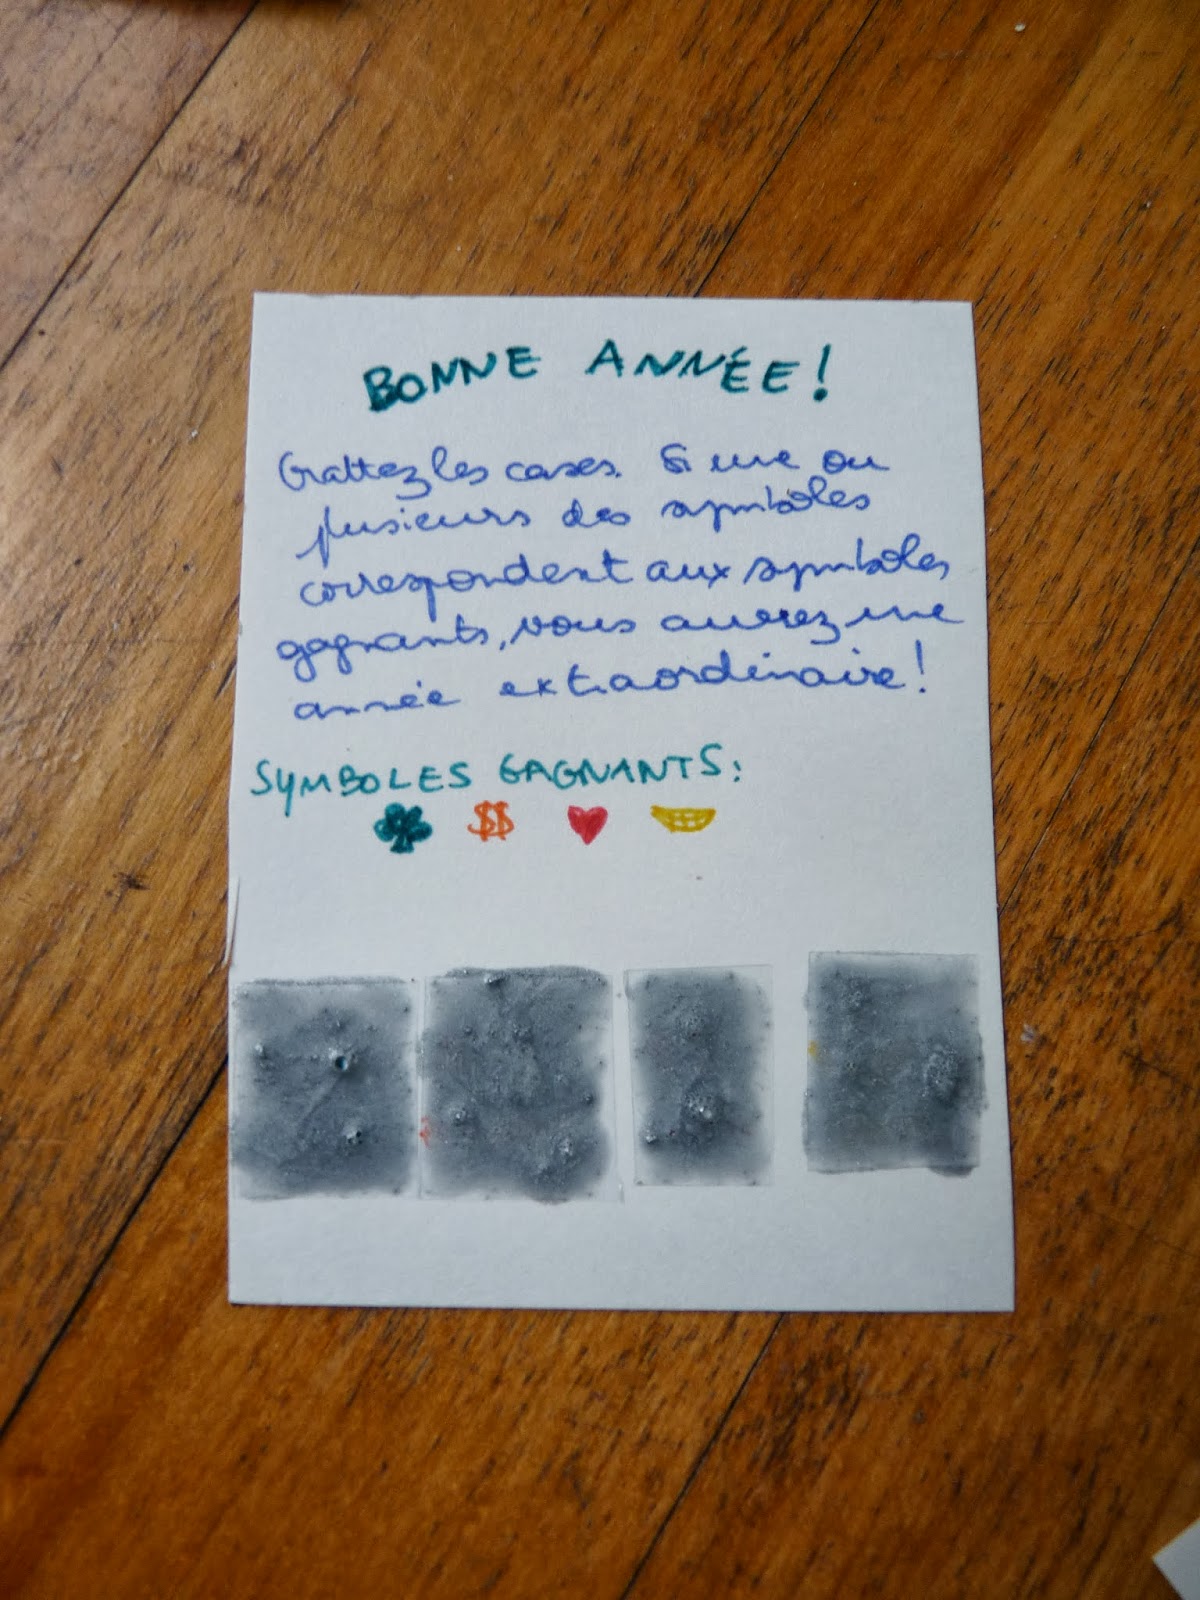 BONNE ANNÉE!
Grattez les cases. Si une ou
plusieurs des symboles
correspondent aux symboles
gagnants, vous aurez une
année extraordinaire!
SYMBOLES GAGNANTS:
$$